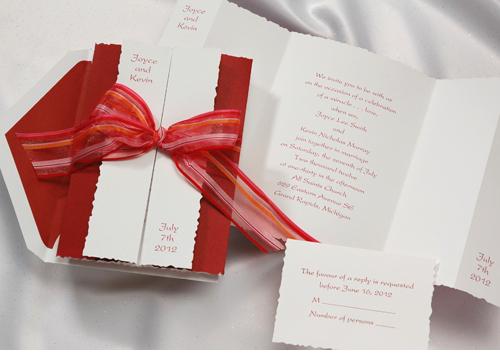 Joyce
and
Kevin
July
7th
2012
Joyce
and
Kevin
We invite you to be with us
on the occasion of a celebration
of a miracle . . . love,
when we,
Joyce Lee Smith
and
Kevin Nicholas Murray
join together in marriage
on Saturday, the seventh of July
Two thousand twelve
at one-thirty in the afternoon
All Saints Church
Eastern Avenue SE
Grand Rapids, Michigan
July
7th
2012
The favour of a reply is requested
before June 16, 2012
M
Number of persons